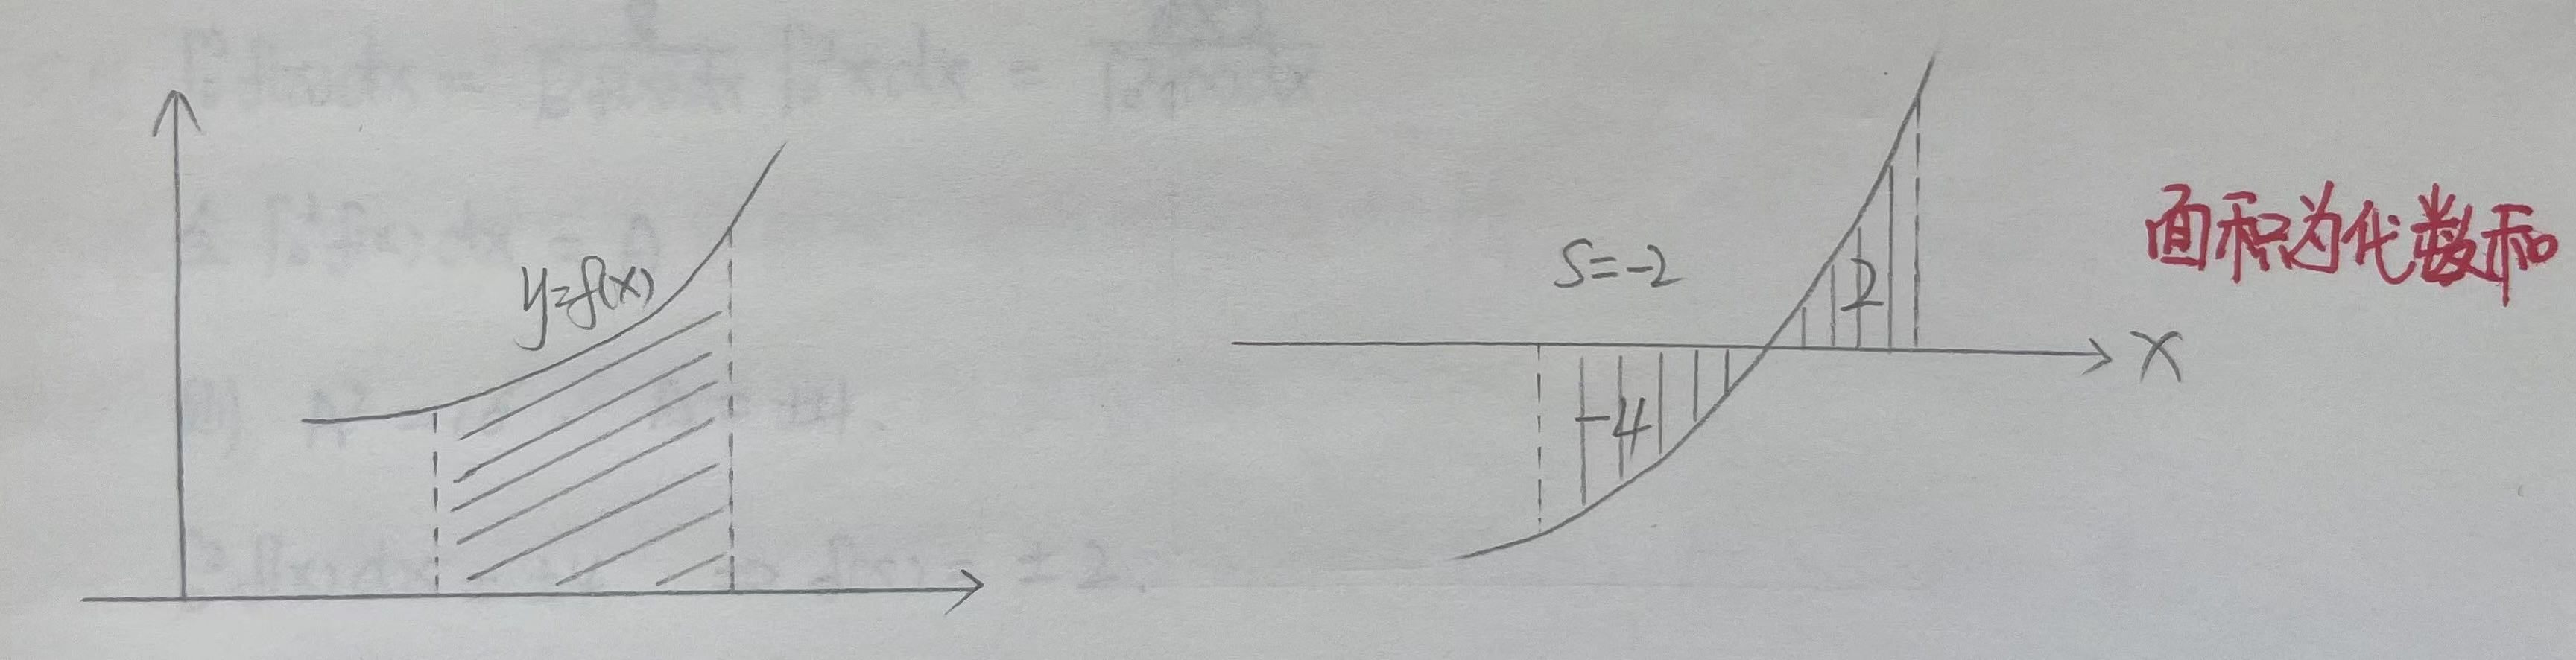 y=f(x)
S=-2
2
-4
x
面积为代数和